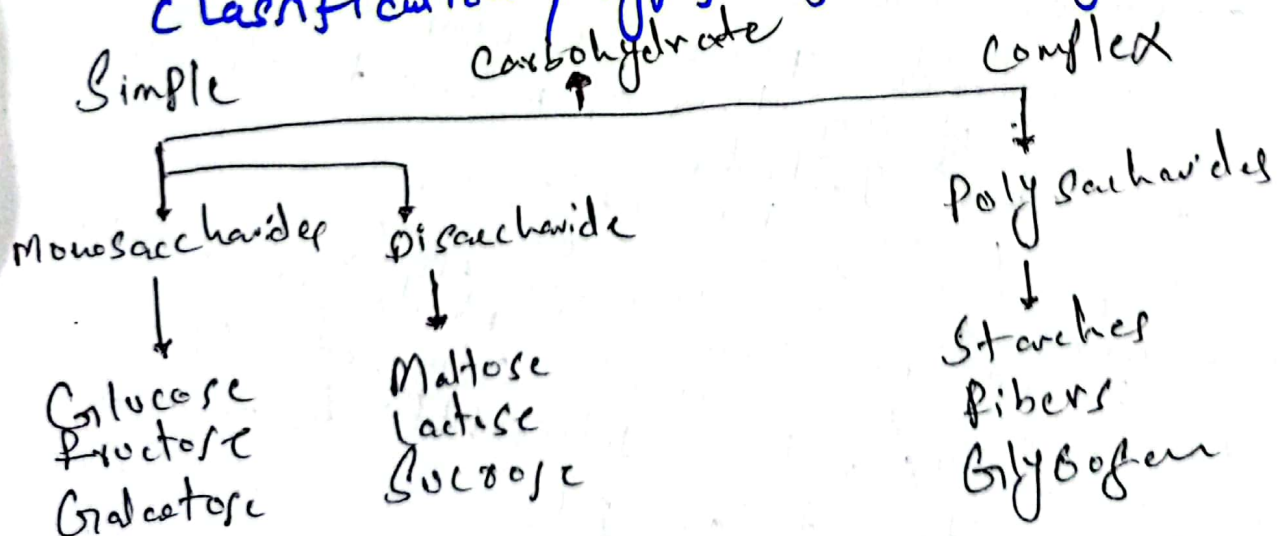 Classification
Carbohydrate
Simple
Complex
Monosaccharides
Disaccharide
Polysacharides
Glucose
Fructose
Galactose
Maltose
Lactose
Sucrose
Starches
Fibers
Glycogen